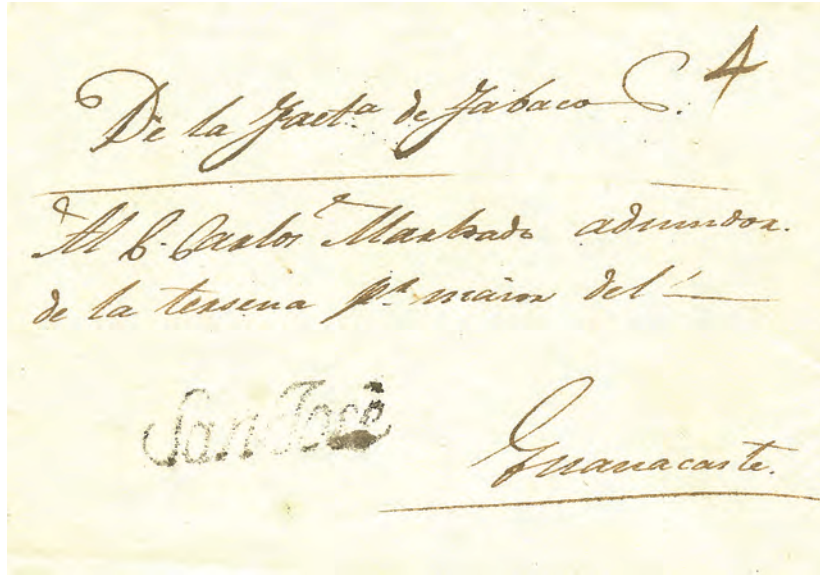 De la Fact.a de Tabaco C. 4
Al C. Carlos Machado admindor.
de la tersena pr. maior del
San José
Guanacaste.